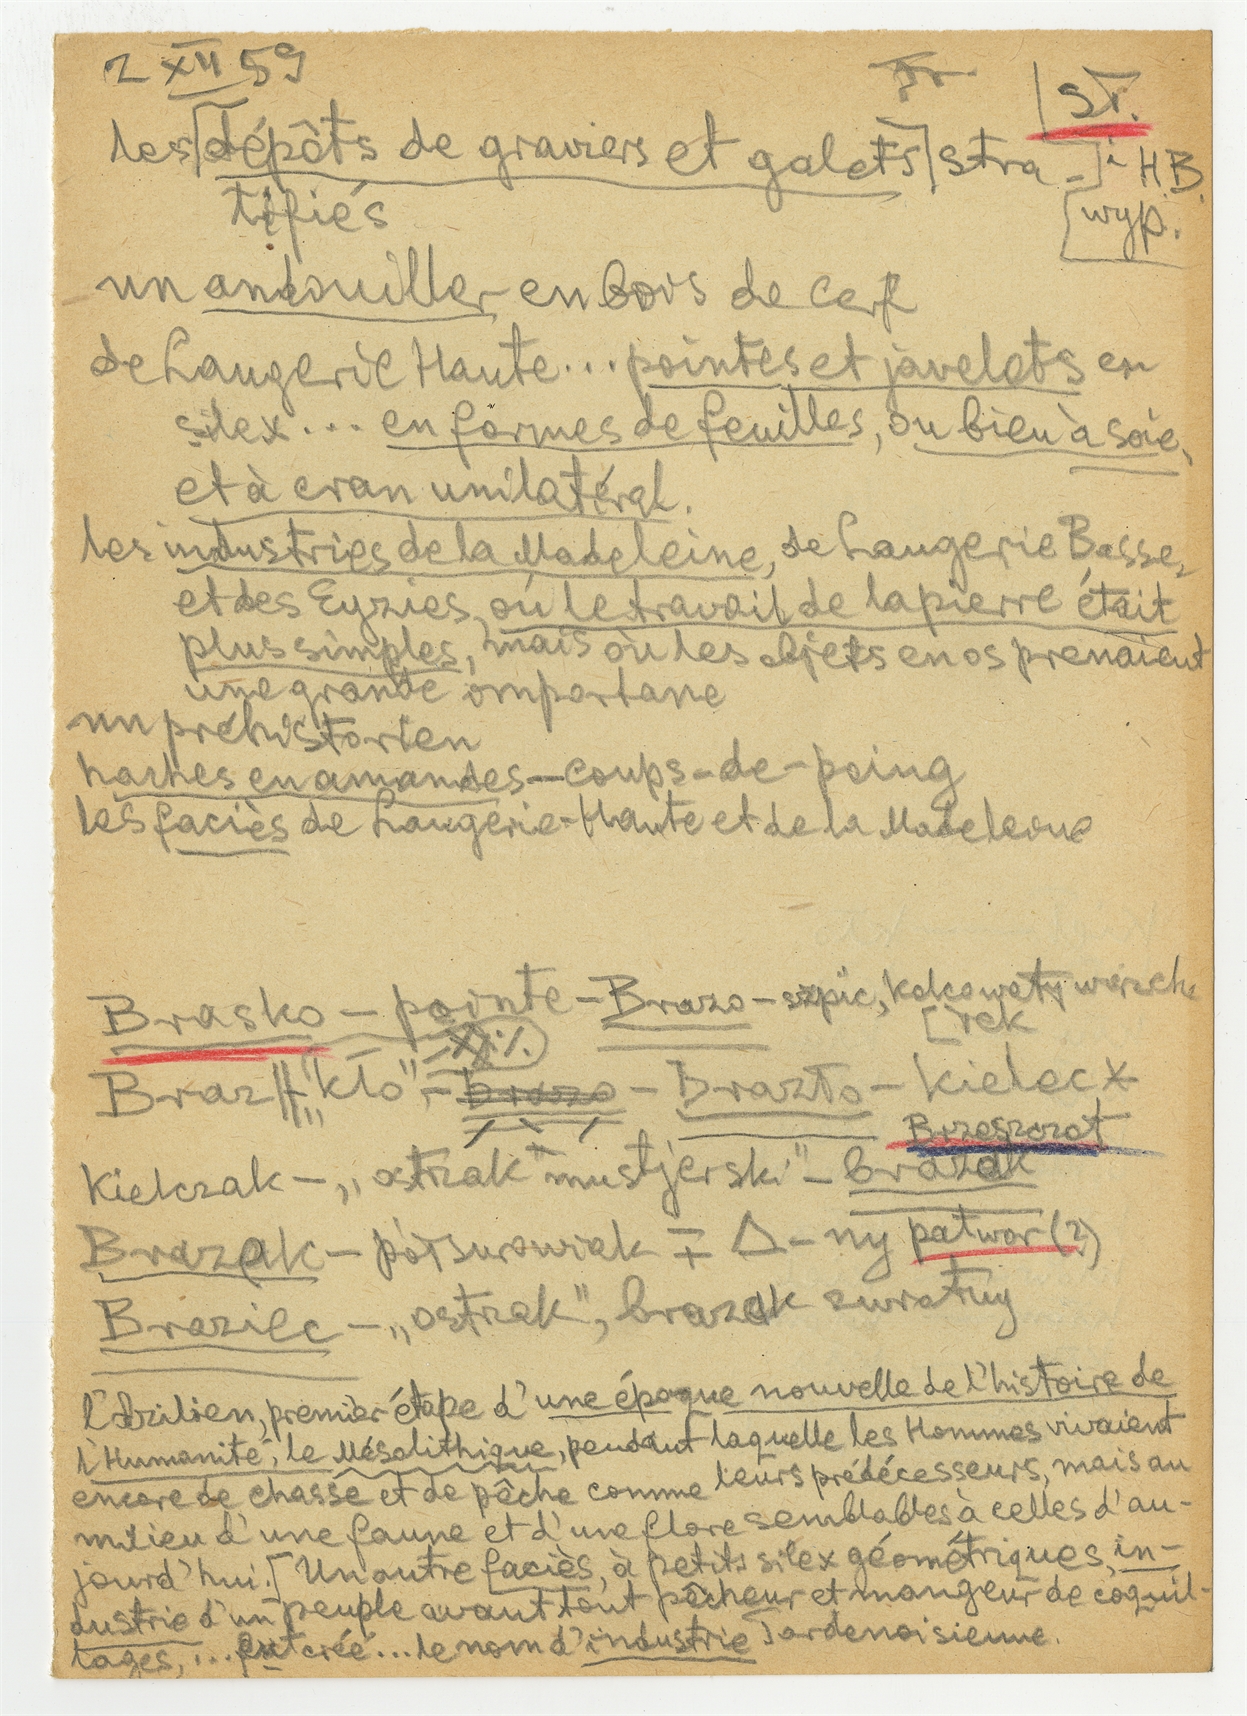 2 XII 59
Fr
| ST.
les [dépôts de graviers et galets] stra-] i H.B.
tifiés
[wyp.
un andouiller en bois de cerf
de Laugerie Haute... pointes et javelots en
silex... en formes de feuilles, ou bien à soie,
et à cran unilatéral.
les industries de la Madeleine, de Laugerie Basse,
et des Eyzies, où le travail de la pierre était
plus simples, mais où les objets en os prenaient
une grande importane
un préhistorien
haches en amandes — coups-de-poing
les faciès de Laugerie-Haute et de la Madeleine
Brasko — pointe — Brazo — szpic, kolcowaty wierzch
[ołek
Braz „kło” — brazo — Brazto — kielec
Brzeszczot
Kielczak — „ostrzak mustjerski” — brazak
Brazak — półsurowiak ∓ Δ-ny patwor (?)
Braziec — „ostrzak”, brazak zwrotny
l'Azilien, premier étape d'une époque nouvelle de l'histoire de
l'Humanité, le Mésolithique, pendant laquelle les Hommes vivaient
encore de chasse et de pêche comme leurs prédécesseurs, mais au
milieu d'une faune et d'une flore semblables à celles d'au-
jourd'hui. [Un autre faciès, à petits silex géométriques, in-
dustrie d'un peuple avant tout pêcheur et mangeur de coquil-
lages, ... fut créé... le nom d'industrie] ardenoisienne.